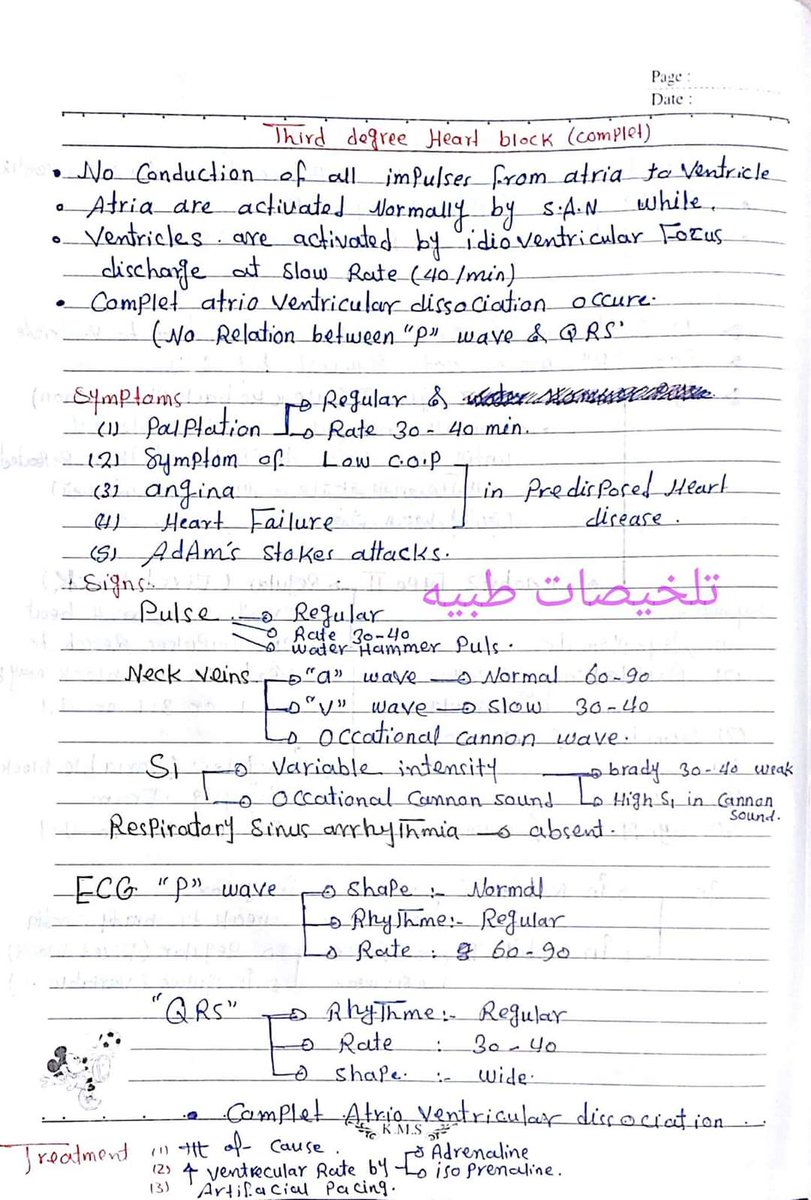 Page :
Date :
Third degree Heart block (complet)
• No Conduction of all impulses from atria to Ventricle
• Atria are activated Normally by S.A.N while.
• Ventricles are activated by idioventricular Focus
discharge at Slow Rate (40/min)
• Complet atrio Ventricular dissociation occure.
(No Relation between "P" wave & QRS'
Symptoms
Regular &
(1) Palptation
Rate 30-40 min.
(2) Symptom of Low C.O.P
(3) angina
in Predisposed Heart
(4) Heart Failure
disease.
(5) AdAm's Stokes attacks.
تلخيصات طبيه
Signs.
Pulse → Regular
Rate 30-40
water Hammer Puls.
Neck veins "a" wave → Normal 60-90
"V" wave → Slow 30-40
Occational Cannon wave.
S1 Variable intensity → brady 30-40 weak
Occational Cannon Sound High S1 in Cannon
Sound.
Respiratory Sinus arrhythmia → absent.
ECG "P" wave Shape :- Normal
Rhythme:- Regular
Rate : 60-90
"QRS" Rhythme:- Regular
Rate : 30-40
Shape. :- Wide.
• Complet Atrio Ventricular dissociation.
K.M.S
Treatment (1) ttt of cause.
(2) ↑ ventrecular Rate by Adrenaline
isoprenaline.
(3) Artifacial Pacing.